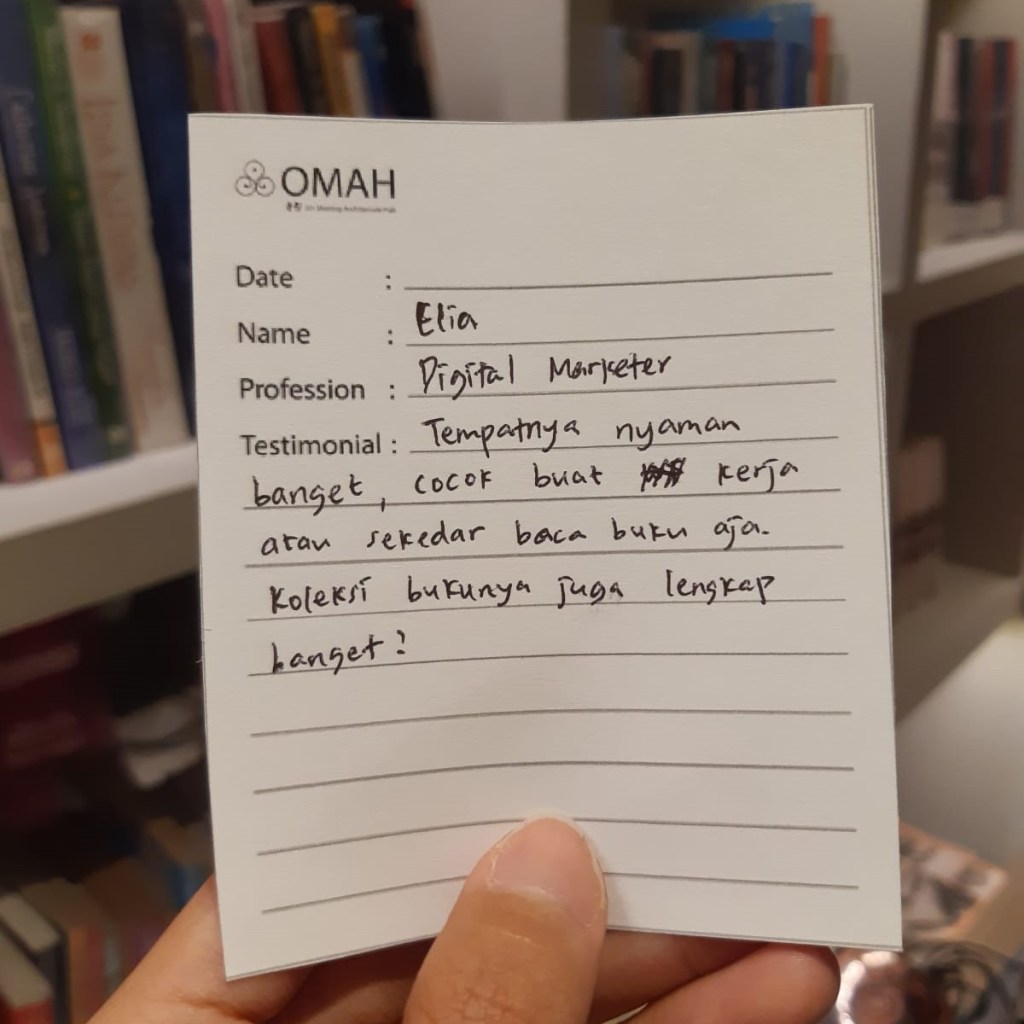 OMAH
Date :
Name : Elia
Profession : Digital Marketer
Testimonial : Tempatnya nyaman
banget, cocok buat kerja
atau sekedar baca buku aja.
Koleksi bukunya juga lengkap
banget!